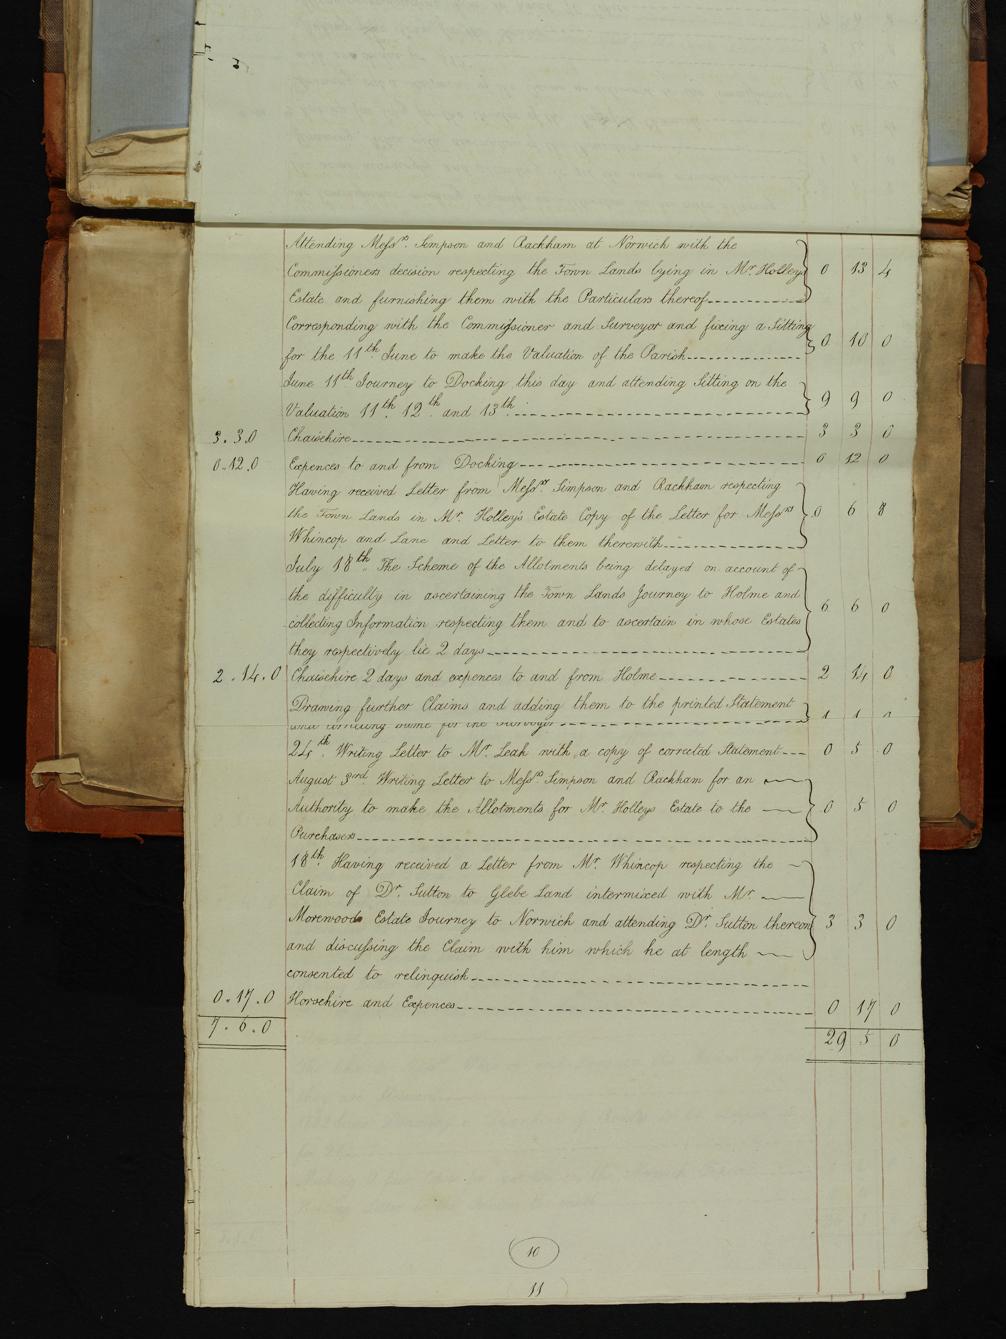 Attending Mess.rs Simpson and Rackham at Norwich with the
Commissioners decision respecting the Town Lands lying in Mr. Holleys 0 13 4
Estate and furnishing them with the Particulars thereof
Corresponding with the Commissioner and Surveyor and fixing a Sitting
for the 11th June to make the Valuation of the Parish 0 10 0
June 11th Journey to Docking this day and attending Sitting on the
Valuation 11th 12th and 13th 9 9 0
3.3.0 Chaisehire 3 3 0
0.12.0 Expences to and from Docking 0 12 0
Having received Letter from Mess.rs Simpson and Rackham respecting
the Town Lands in Mr. Holley's Estate Copy of the Letter for Mess.rs 0 6 8
Whincop and Lane and Letter to them therewith
July 18th The Scheme of the Allotments being delayed on account of
the difficulty in ascertaining the Town Lands Journey to Holme and
collecting Information respecting them and to ascertain in whose Estates 6 6 0
they respectively lie 2 days
2.14.0 Chaisehire 2 days and expences to and from Holme 2 14 0
Drawing further Claims and adding them to the printed Statement
and correcting same for the Surveyor 1 1 0
24th Writing Letter to Mr. Leak with a copy of corrected Statement 0 5 0
August 3rd Writing Letter to Mess.rs Simpson and Rackham for an
Authority to make the Allotments for Mr. Holleys Estate to the 0 5 0
Purchasers
18th Having received a Letter from Mr. Whincop respecting the
Claim of Dr. Sutton to Glebe Land intermixed with Mr.
Morewoods Estate Journey to Norwich and attending Dr. Sutton thereon 3 3 0
and discussing the Claim with him which he at length
consented to relinquish
0.17.0 Horsehire and Expences 0 17 0
7.6.0 29 5 0
10
11